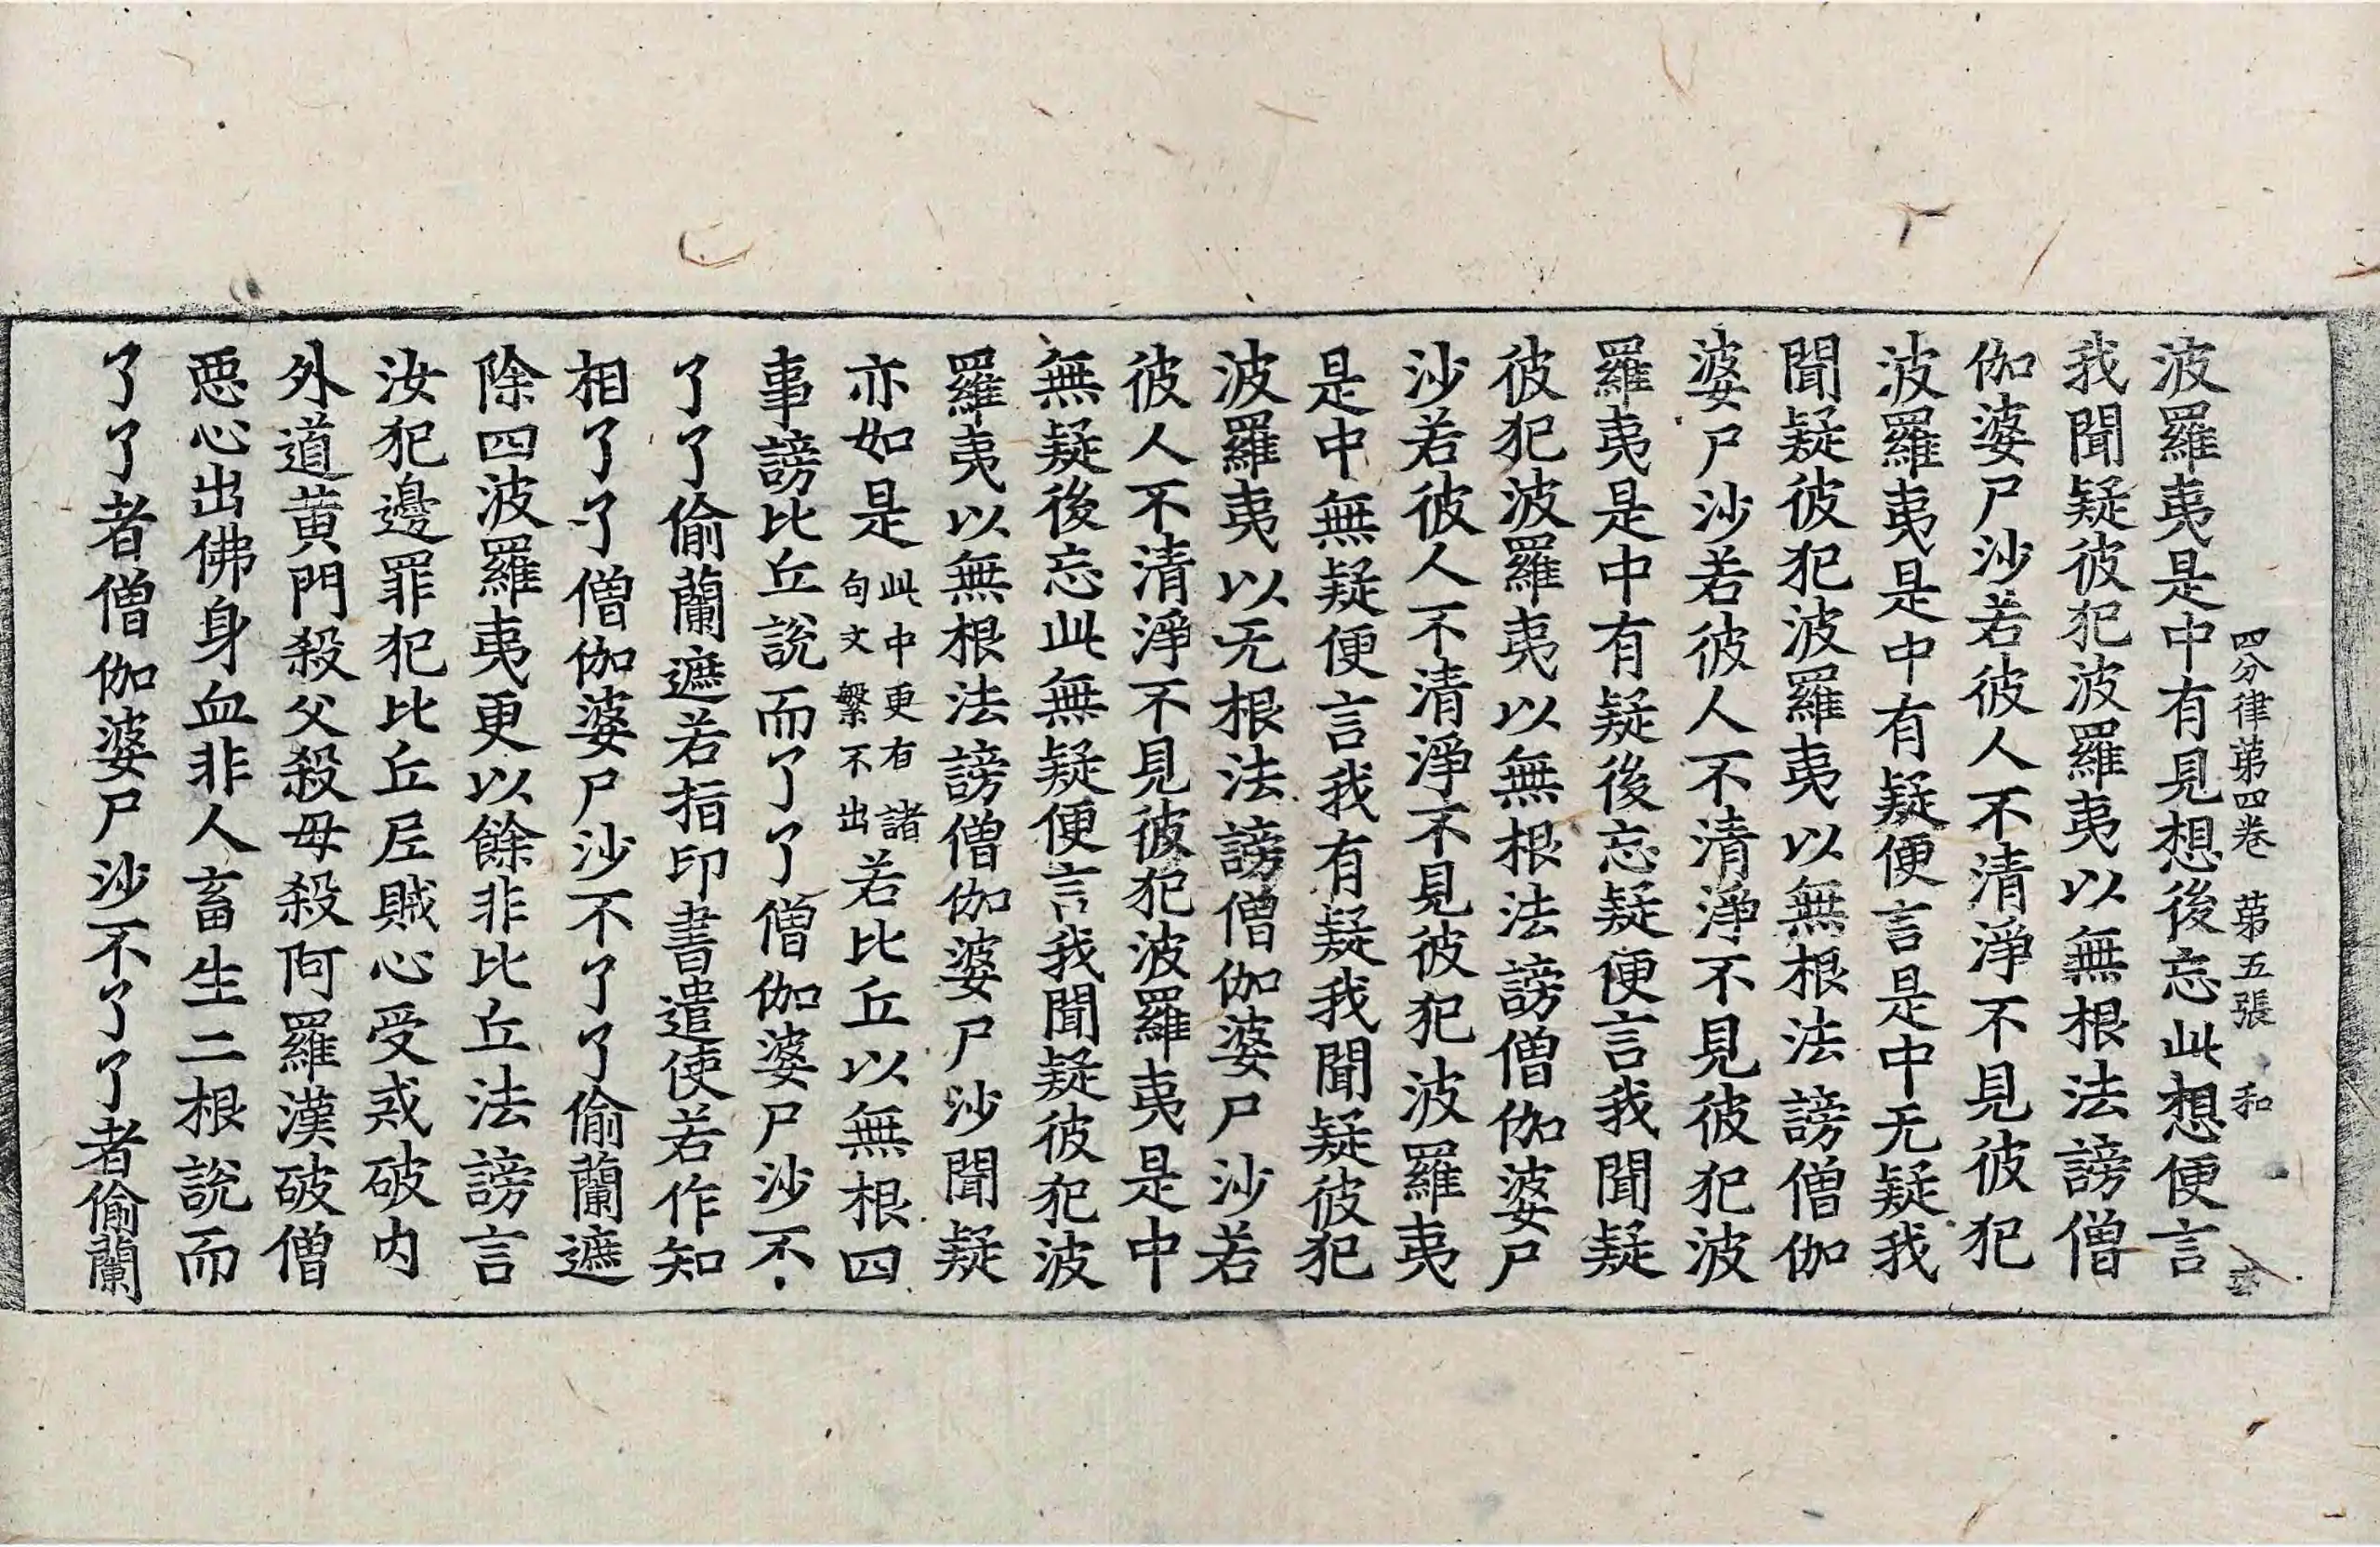 四分律第四卷 第五張 和
波羅夷是中有見想後忘此想便言
我聞疑彼犯波羅夷以無根法謗僧
伽婆尸沙若彼人不清淨不見彼犯
波羅夷是中有疑便言是中无疑我
聞疑彼犯波羅夷以無根法謗僧伽
婆尸沙若彼人不清淨不見彼犯波
羅夷是中有疑後忘疑便言我聞疑
彼犯波羅夷以無根法謗僧伽婆尸
沙若彼人不清淨不見彼犯波羅夷
是中無疑便言我有疑我聞疑彼犯
波羅夷以无根法謗僧伽婆尸沙若
彼人不清淨不見彼犯波羅夷是中
無疑後忘此無疑便言我聞疑彼犯波
羅夷以無根法謗僧伽婆尸沙聞疑
亦如是此中更有諸句文繫不出若比丘以無根四
事謗比丘說而了了僧伽婆尸沙不
了了偷蘭遮若指印書遣使若作知
相了了僧伽婆尸沙不了了偷蘭遮
除四波羅夷更以餘非比丘法謗言
汝犯邊罪犯比丘尼賊心受戒破內
外道黃門殺父殺母殺阿羅漢破僧
惡心出佛身血非人畜生二根說而
了了者僧伽婆尸沙不了了者偷蘭